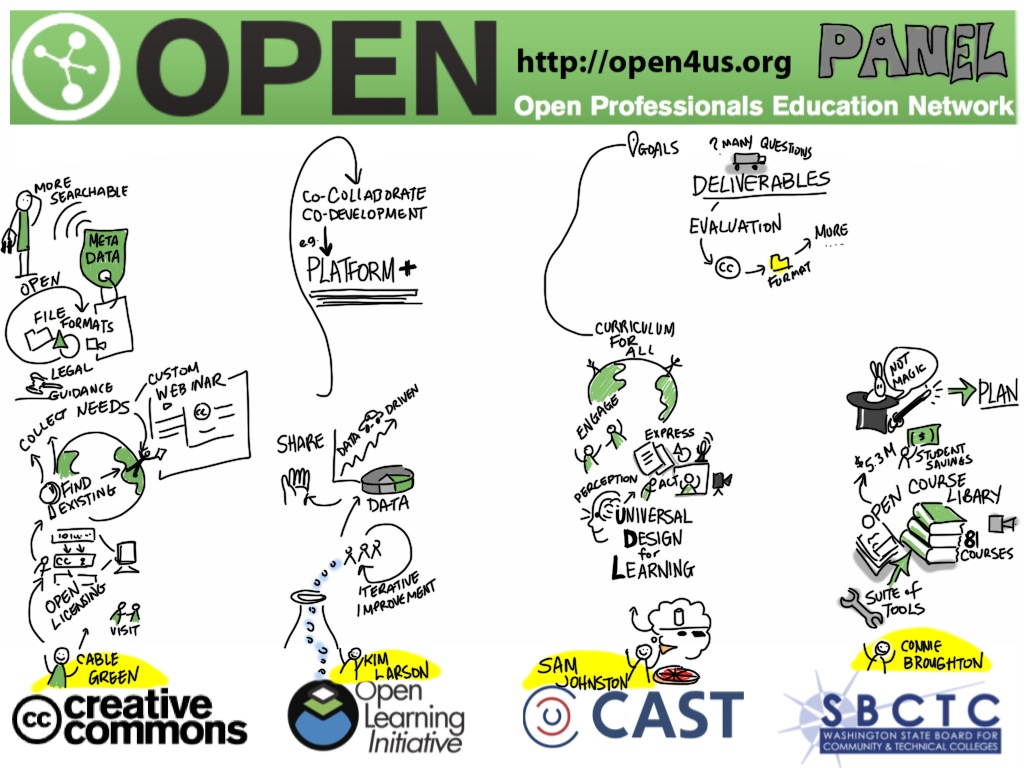 OPEN
http://open4us.org
PANEL
Open Professionals Education Network
MORE
SEARCHABLE
META
DATA
OPEN
FILE
FORMATS
LEGAL
GUIDANCE
CUSTOM
WEBINAR
CC
COLLECT NEEDS
FIND
EXISTING
CC
OPEN
LICENSING
VISIT
CABLE
GREEN
cc
creative
commons
CO-COLLABORATE
CO-DEVELOPMENT
e.g.
PLATFORM +
SHARE
DATA
DRIVEN
DATA
ITERATIVE
IMPROVEMENT
KIM
LARSON
Open
Learning
Initiative
GOALS
? MANY QUESTIONS
DELIVERABLES
EVALUATION
CC
FORMAT
MORE
....
CURRICULUM
FOR
ALL
ENGAGE
EXPRESS
ACT
PERCEPTION
UNIVERSAL
DESIGN
for
LEARNING
SAM
JOHNSTON
CAST
NOT
MAGIC
PLAN
$
$5.3M
STUDENT
SAVINGS
OPEN COURSE
LIBARY
81
COURSES
SUITE of
TOOLS
CONNIE
BROUGHTON
SBCTC
WASHINGTON STATE BOARD FOR
COMMUNITY & TECHNICAL COLLEGES